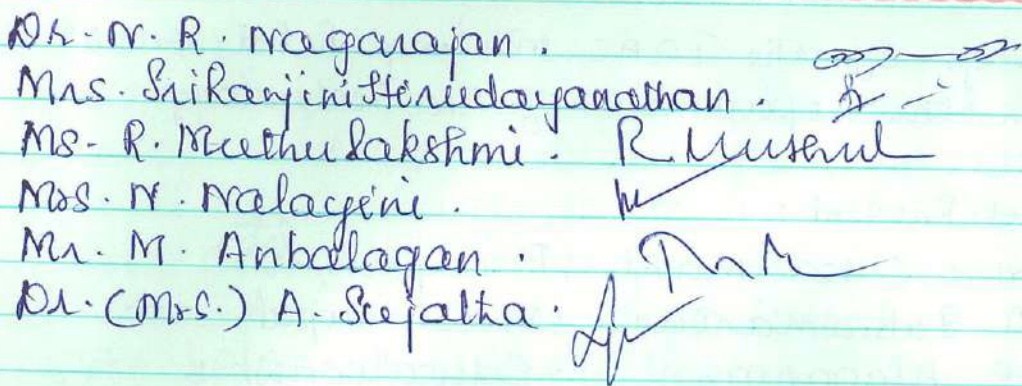 Dr. N. R. Nagarajan.
Mrs. SriRanjini Hirudayanathan.
Ms. R. Muthulakshmi. R Muthul
Mrs. N. Nalayini.
Mr. M. Anbalagan.
Dr. (Mrs.) A. Sujatha.